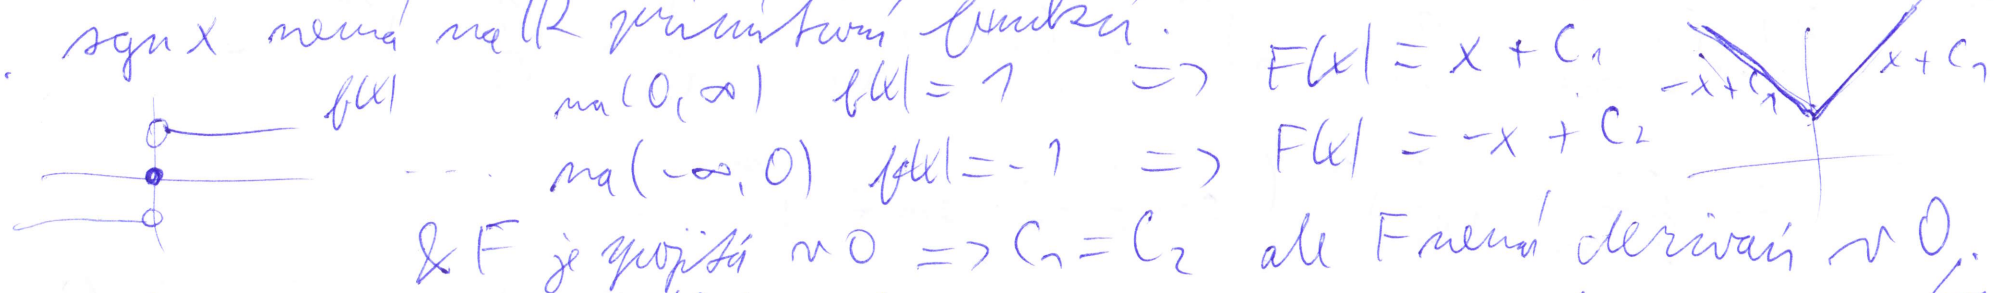 sgn x nemá na ℝ primitivní funkci.
f(x) na (0, ∞) f(x) = 1 => F(x) = x + C₁ -x + C₁ x + C₁
na (-∞, 0) f(x) = -1 => F(x) = -x + C₂
& F je spojitá v 0 => C₁ = C₂ ale F nemá derivaci v 0.